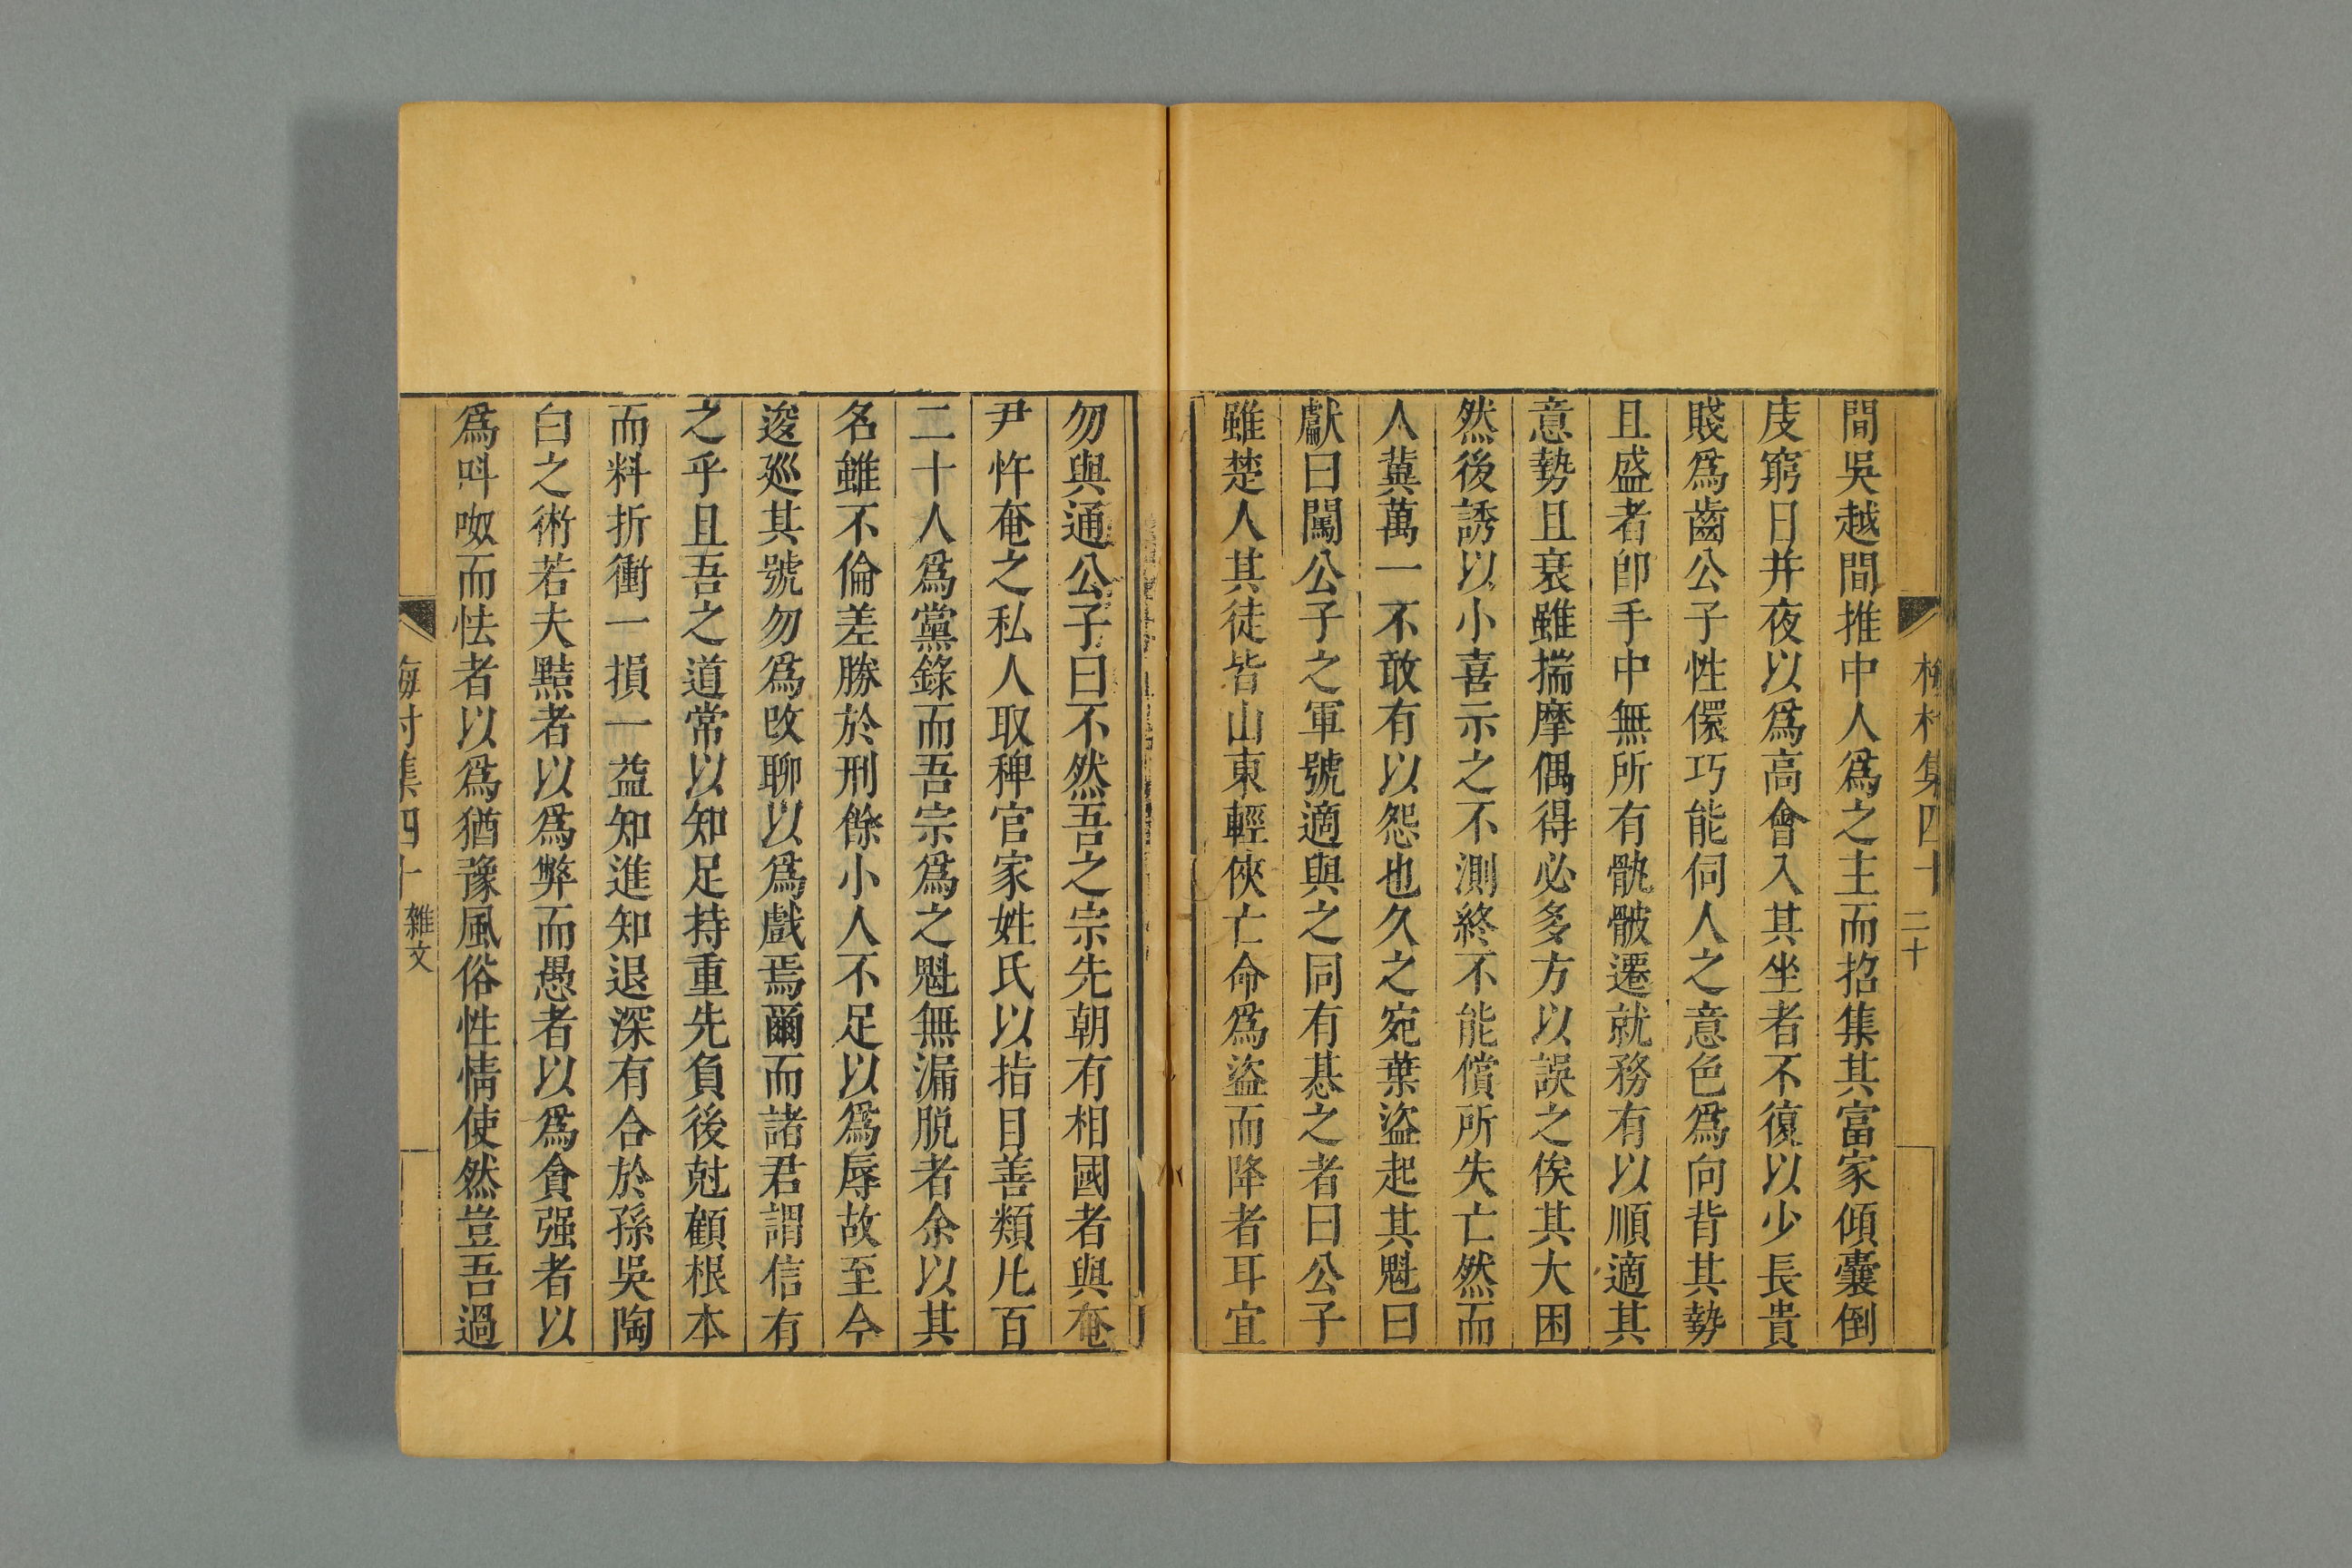 梅村集四十
二十
間吳越間推中人爲之主而招集其富家傾囊倒
庋窮日并夜以爲高會入其坐者不復以少長貴
賤爲齒公子性儇巧能伺人之意色爲向背其勢
且盛者卽手中無所有骫骳遷就務有以順適其
意勢且衰雖揣摩偶得必多方以誤之俟其大困
然後誘以小喜示之不測終不能償所失亡然而
人冀萬一不敢有以怨也久之宛葉盜起其魁曰
獻曰闖公子之軍號適與之同有惎之者曰公子
雖楚人其徒皆山東輕俠亡命爲盜而降者耳宜
勿與通公子曰不然吾之宗先朝有相國者與奄
尹忤奄之私人取稗官家姓氏以指目善類凡百
二十人爲黨錄而吾宗爲之魁無漏脫者余以其
名雖不倫差勝於刑餘小人不足以爲辱故至今
逡廵其號勿爲改聊以爲戲焉爾而諸君謂信有
之乎且吾之道常以知足持重先負後尅顧根本
而料折衝一損一益知進知退深有合於孫吳陶
白之術若夫黠者以爲弊而愚者以爲貪强者以
爲呌呶而怯者以爲猶豫風俗性情使然豈吾過
梅村集四十 雜文